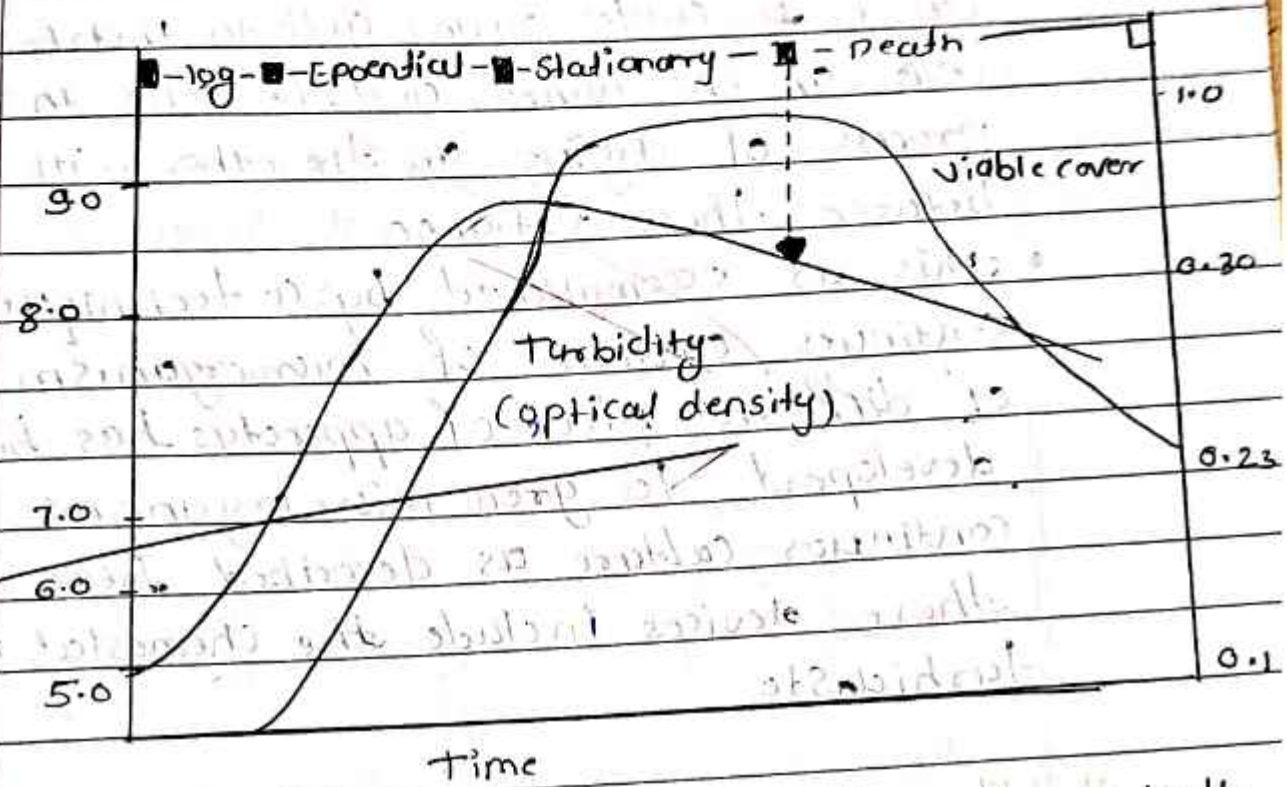 -log-Epoential-Stationary-Death
1.0
viable cover
9.0
0.30
8.0
Turbidity
(optical density)
0.23
7.0
6.0
0.1
5.0
Time